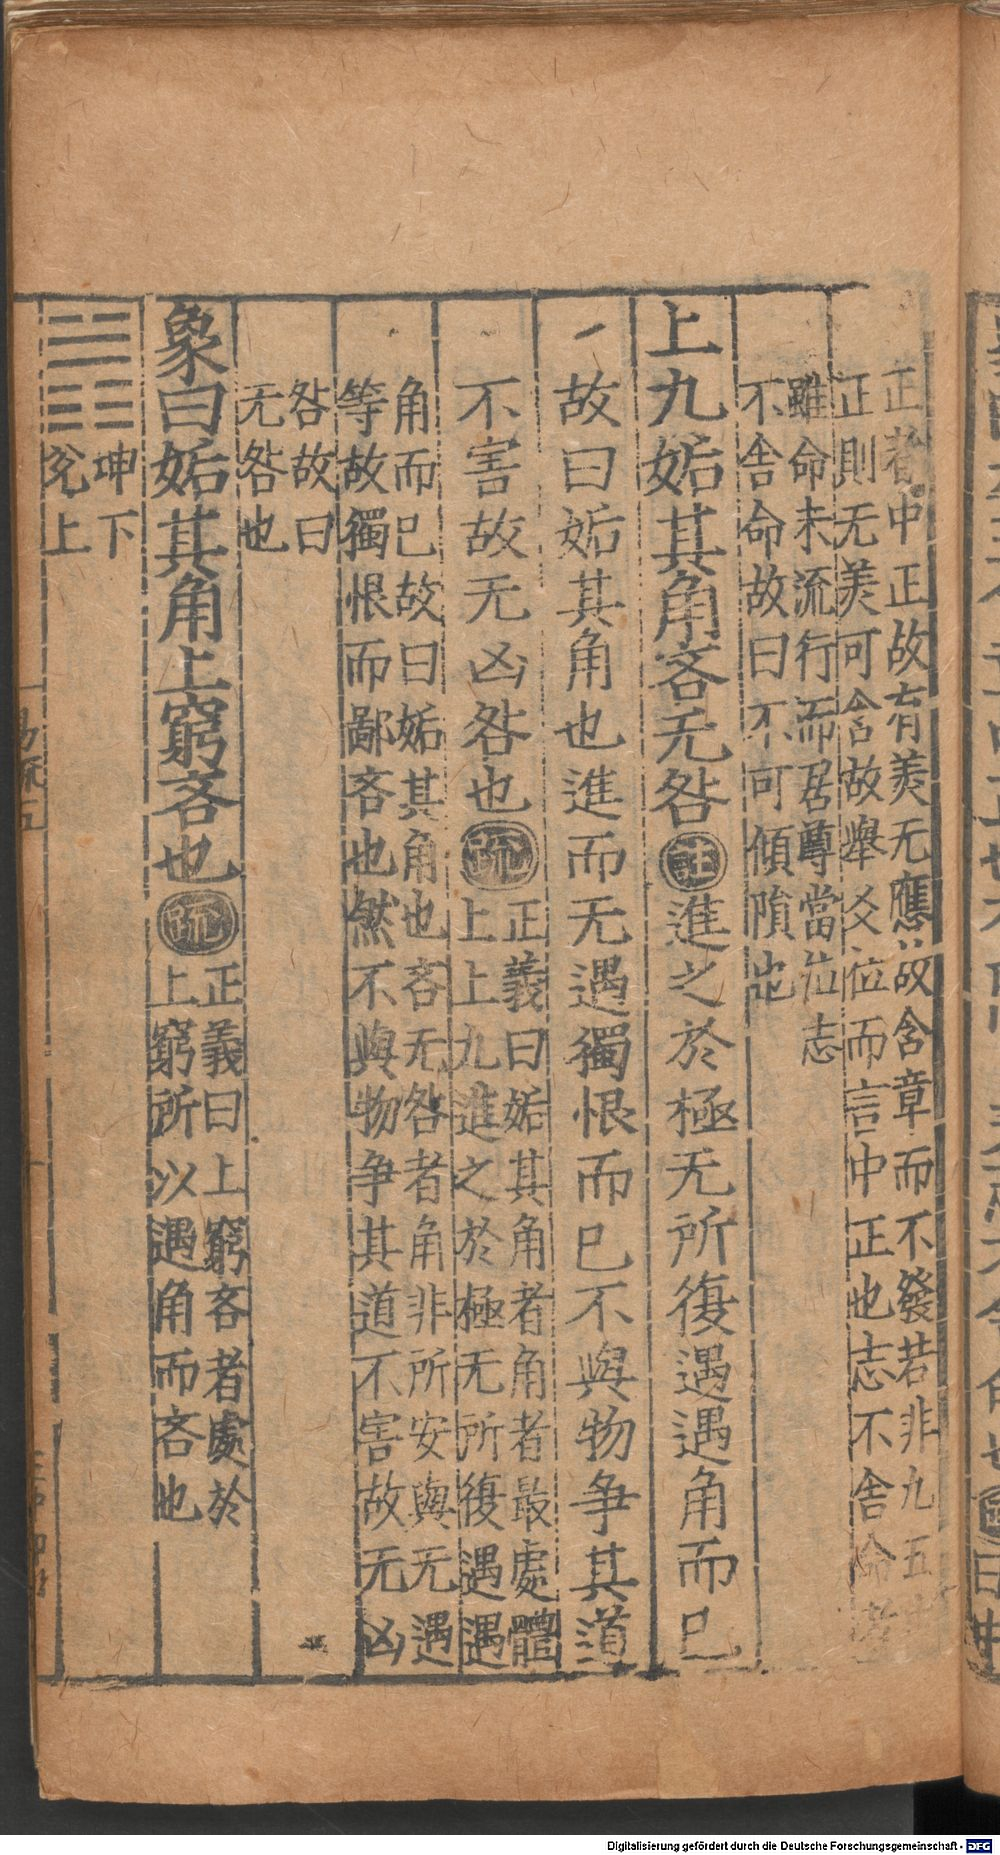 正者中正故有美无應故含章而不發若非九五中
正則无美可含故舉爻位而言中正也志不舍命者
雖命未流行而居尊當位志
不舍命故曰不可傾隕也
上九姤其角吝无咎註進之於極无所復遇遇角而已
故曰姤其角也進而无遇獨恨而已不與物争其道
不害故无凶咎也疏
正義曰姤其角者角者最處體
上上九進之於極无所復遇遇
角而已故曰姤其角也吝无咎者角非所安與无遇
等故獨恨而鄙吝也然不與物争其道不害故无凶
咎故曰
无咎也
象曰姤其角上窮吝也疏
正義曰上窮吝者處於
上窮所以遇角而吝也
坤下
兊上
易疏五
Digitalisierung gefördert durch die Deutsche Forschungsgemeinschaft - DFG